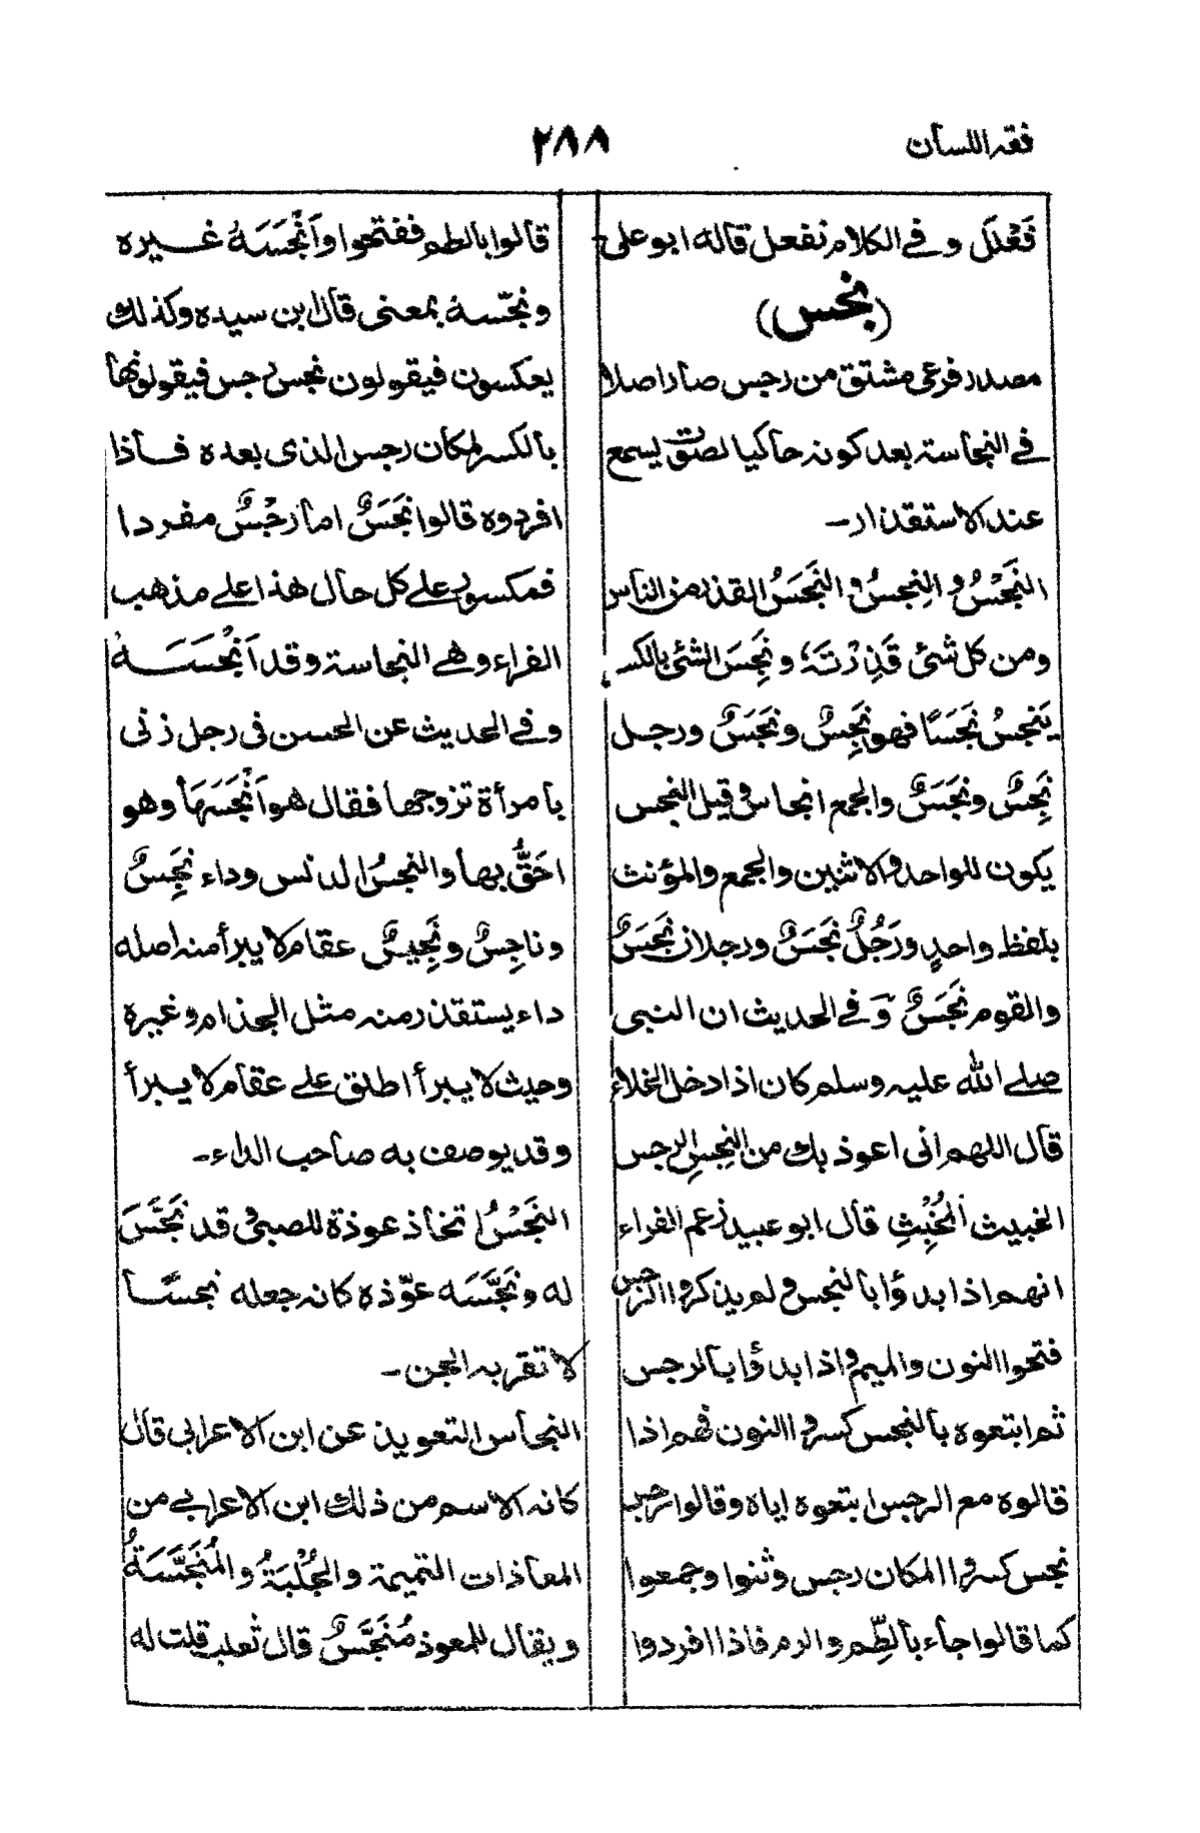 فقه اللسان
٢٨٨
فَعْلَلَ وفي الكلام نفعل قاله ابو على
(نجس)
مصدر فرعى مشتق من رجس صار اصلا
في النجاسة بعد كونه حاكيا لصوت يسمع
عند الاستقذار۔
النَّجَسُ والنِجسُ والنَّجَسُ القذر من الناس
ومن كل شئ قَذِرْتَهٗ ونَجِسَ الشئ بالكسر
يَنجسُ نَجَسًا فهو نَجِسٌ ونَجَسٌ ورجل
نَجِسٌ ونَجَسٌ والجمع انجاس وقيل النجس
يكون للواحد والاثنين والجمع والمؤنث
بلفظ واحدٍ ورَجُلٌ نَجَسٌ ورجلان نَجَسٌ
والقوم نَجَسٌ وَفي الحديث ان النبى
صلے الله عليه وسلم كان اذا دخل الخلاء
قال اللهم انى اعوذ بك من النِجسِ الرجس
الخبيث اَلخُبِثِ قال ابو عبيد زعم الفراء
انهم اذا بدؤا بالنجس ولم يذكروا الرجس
فتحوا النون والميم واذا بدؤا بالرجس
ثم ابتعوه بالنجس كسروا النون فهم اذا
قالوه مع الرجس ابتعوه اياه وقالوا رجس
نجس كسروا المكان رجس وثنوا وجمعوا
كما قالوا جاء بالطِّم والرم فاذا افردوا
قالوا بالطم ففتحوا واَنْجَسَهُ غيره
ونجّسه بمعنى قال ابن سيده وكذلك
يعكسون فيقولون نجس رجس فيقولونها
بالكسر لمكان رجس الذى بعده فاذا
افردوه قالوا نَجَسٌ اما رِجْسٌ مفردا
فمكسور على كل حال هذا على مذهب
الفراء وهي النجاسة وقد اَنْجَسَهُ
وفي الحديث عن الحسن فى رجل زنى
بامرأة تزوجها فقال هو اَنْجَسَهَا وهو
احَقُّ بها والنجسُ الدنس وداء نَجِسٌ
وناجِسٌ ونَجِيسٌ عقام لا يبرأ منه اصله
داء يستقذر منه مثل الجذام وغيره
وحيث لا يبرأ اطلق على عقام لا يبرأ
وقد يوصف به صاحب الداء۔
النَجَسُ اتخاذ عوذة للصبى وقد نَجَّسَ
له ونَجَّسَه عوّذه كانه جعله نجسًا
لا تقربه الجن۔
النجاس التعويذ عن ابن الاعرابى قال
كانه الاسم من ذلك ابن الاعرابي من
المعاذات التميمة والجُلْبَةُ والمُنَجَّسَةُ
ويقال للمعوذ مُنَجَّسٌ قال ثعلب قلت له